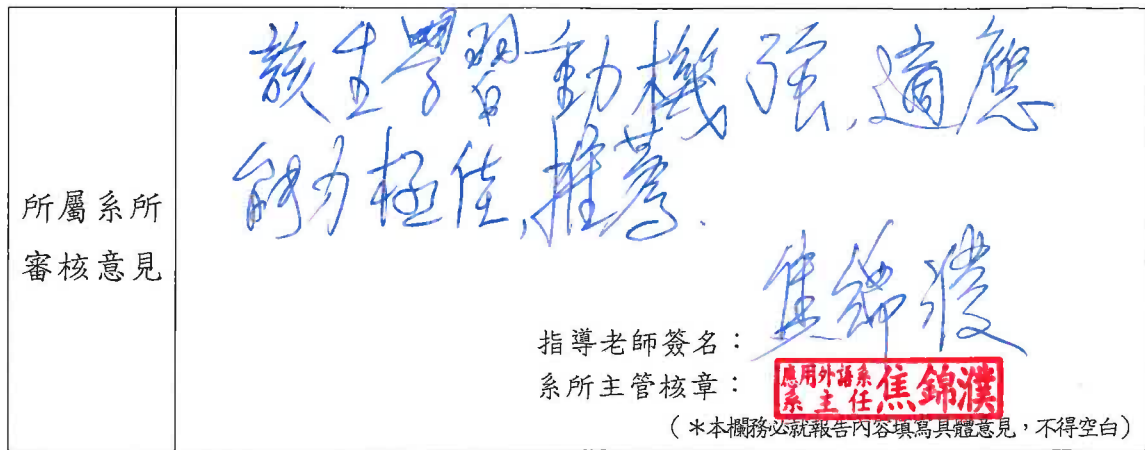 所屬系所
審核意見
該生學習動機強,適應
能力極佳,推薦.
指導老師簽名：焦錦濮
系所主管核章：
應用外語系
系主任 焦錦濮
（*本欄務必就報告內容填寫具體意見，不得空白）